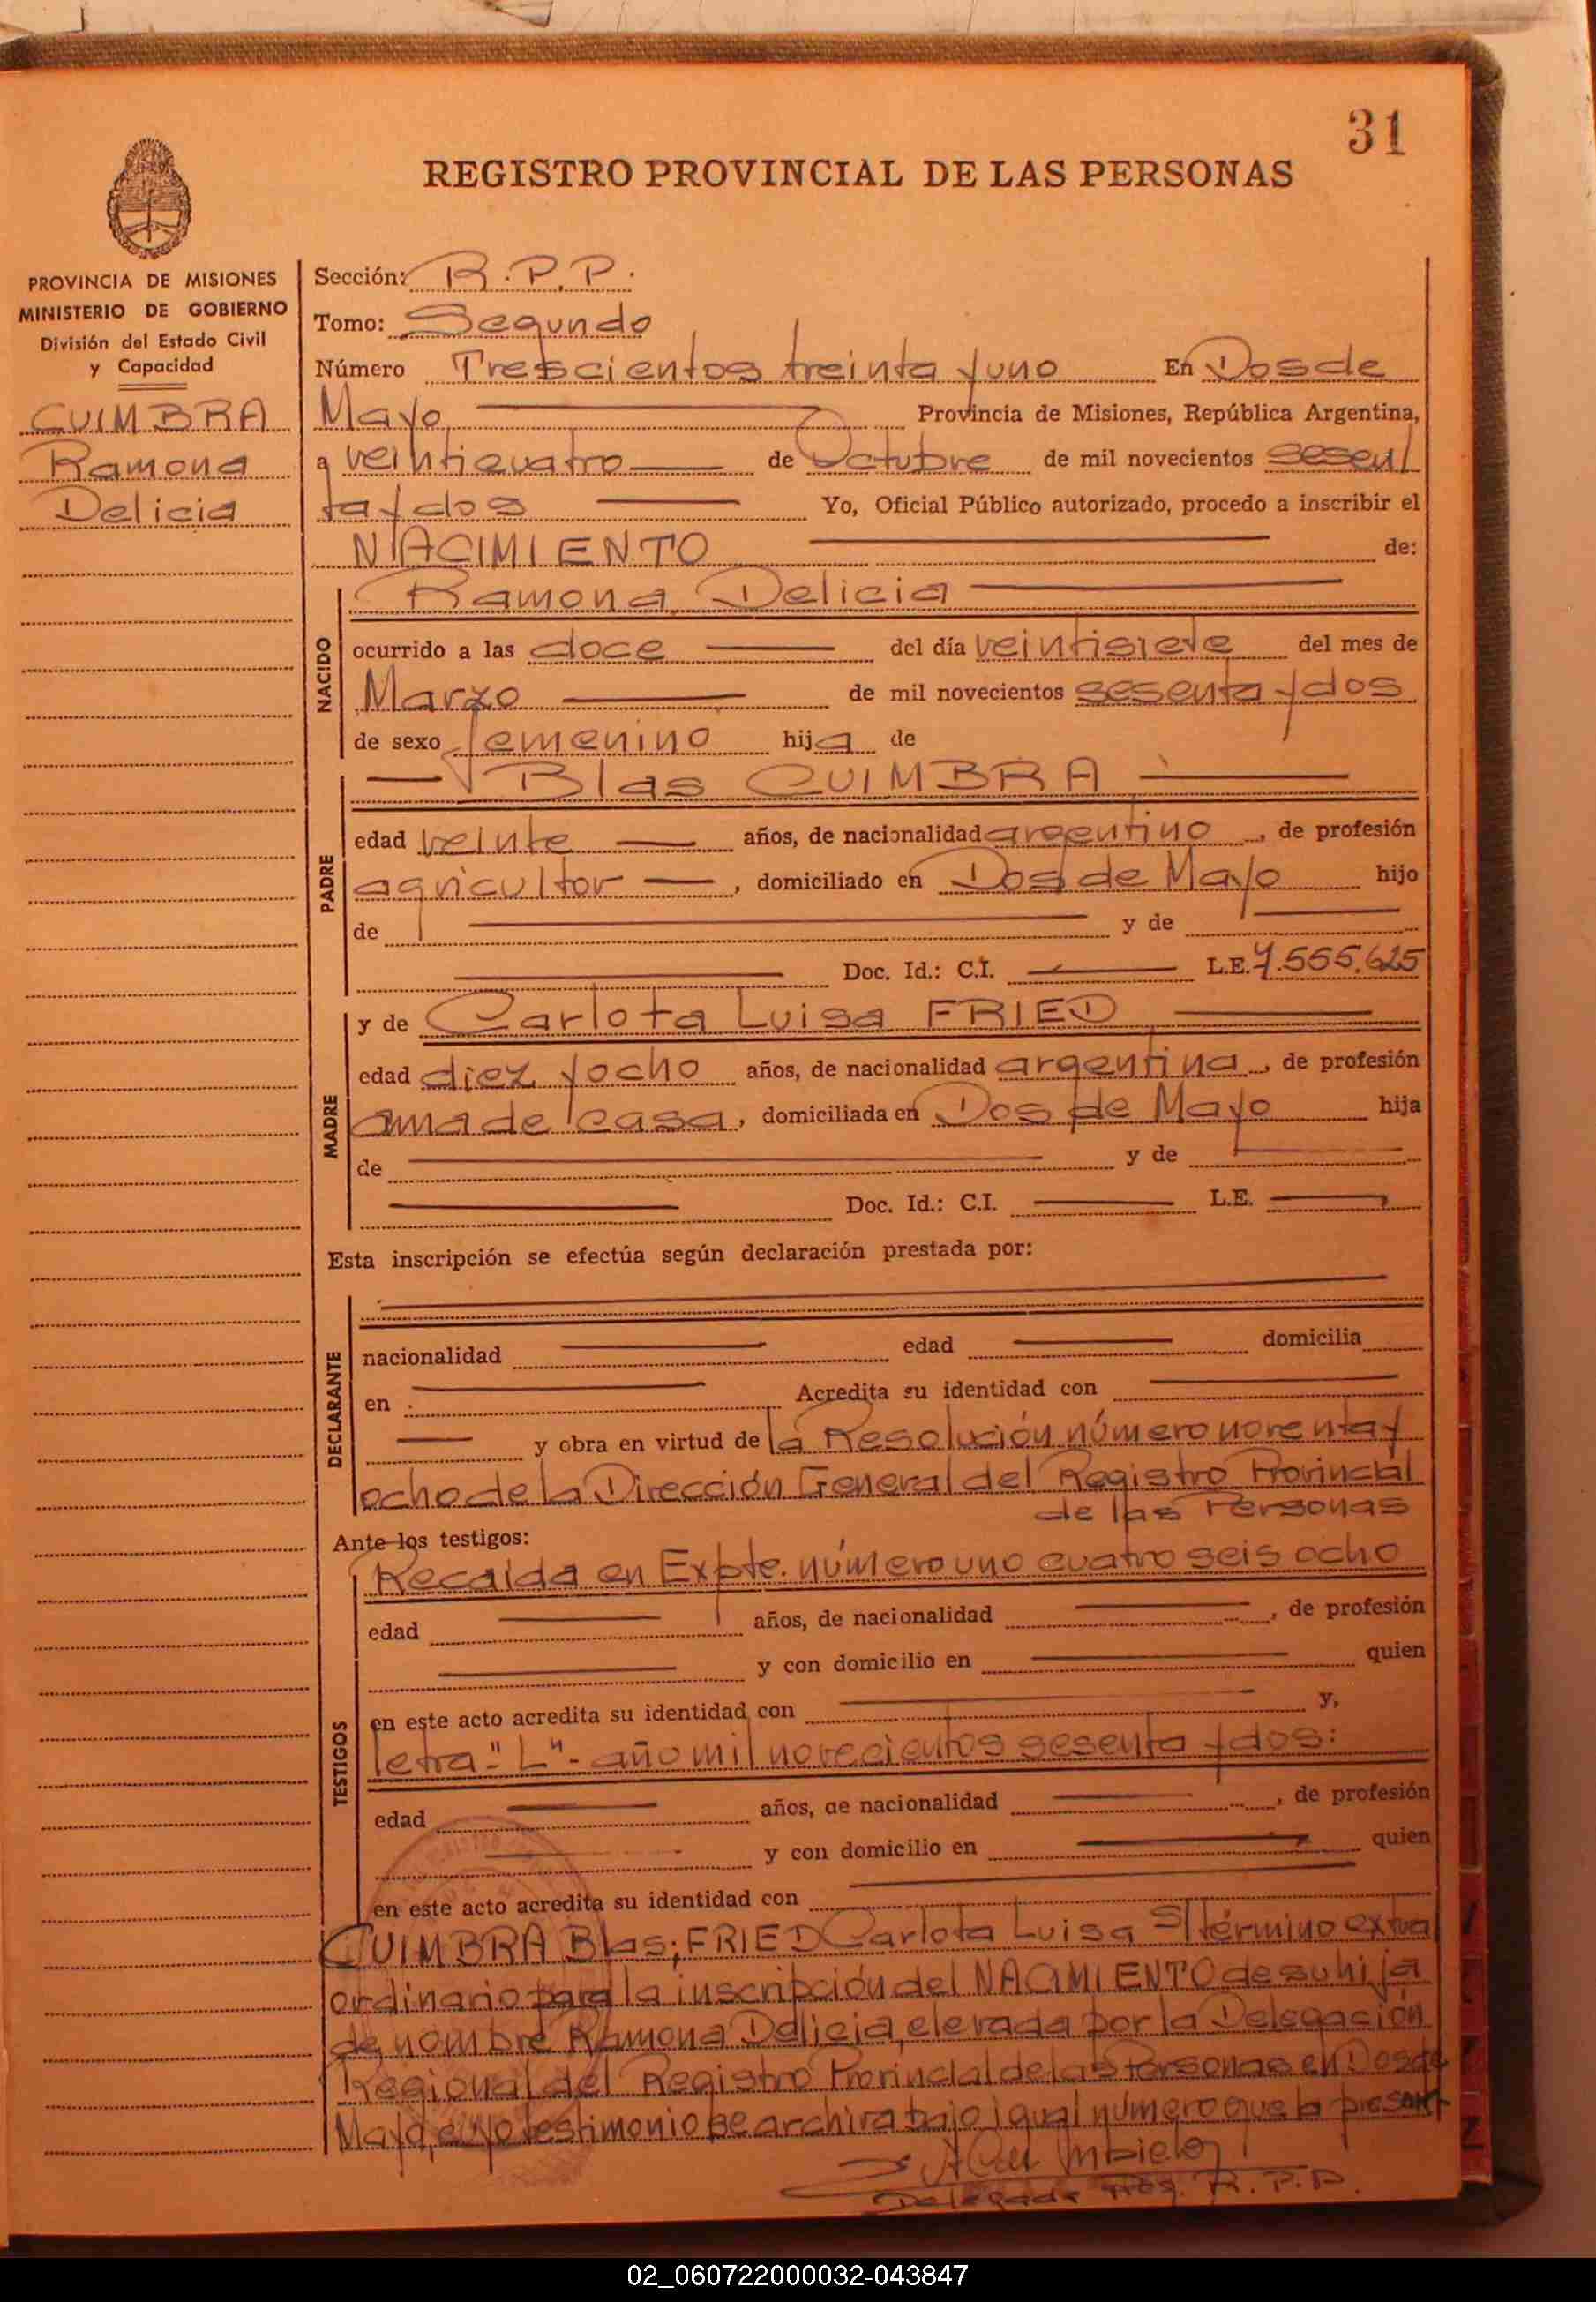 31
REGISTRO PROVINCIAL DE LAS PERSONAS
PROVINCIA DE MISIONES
MINISTERIO DE GOBIERNO
División del Estado Civil
y Capacidad
CUIMBRA
Ramona
Delicia
Sección: R.P.P.
Tomo: Segundo
Número Trescientos treinta y uno En Dos de
Mayo Provincia de Misiones, República Argentina,
a veinticuatro de Octubre de mil novecientos sesen
ta y dos Yo, Oficial Público autorizado, procedo a inscribir el
NACIMIENTO de:
NACIDO
Ramona Delicia
ocurrido a las doce del día veintisiete del mes de
Marzo de mil novecientos sesenta y dos
de sexo femenino hija de
PADRE
Blas CUIMBRA
edad veinte años, de nacionalidad argentino, de profesión
agricultor, domiciliado en Dos de Mayo hijo
de y de
Doc. Id.: C.I. L.E. 7.555.625
MADRE
y de Carlota Luisa FRIED
edad diez y ocho años, de nacionalidad argentina, de profesión
ama de casa, domiciliada en Dos de Mayo hija
de y de
Doc. Id.: C.I. L.E.
Esta inscripción se efectúa según declaración prestada por:
DECLARANTE
nacionalidad edad domicilia
en Acredita su identidad con
y obra en virtud de la Resolución número noventa y
ocho de la Dirección General del Registro Provincial
de las Personas
Ante los testigos:
TESTIGOS
Recaida en Expte. número uno cuatro seis ocho
edad años, de nacionalidad , de profesión
y con domicilio en quien
en este acto acredita su identidad con y,
letra "L" - año mil novecientos sesenta y dos:
edad años, de nacionalidad , de profesión
y con domicilio en quien
en este acto acredita su identidad con
CUIMBRA Blas; FRIED Carlota Luisa S/término extra
ordinario para la inscripción del NACIMIENTO de su hija
de nombre Ramona Delicia, elevada por la Delegación
Regional del Registro Provincial de las Personas en Dos de
Mayo, cuyo testimonio se archiva bajo igual número que la present
Delegada Reg. R.P.P.
02_060722000032-043847